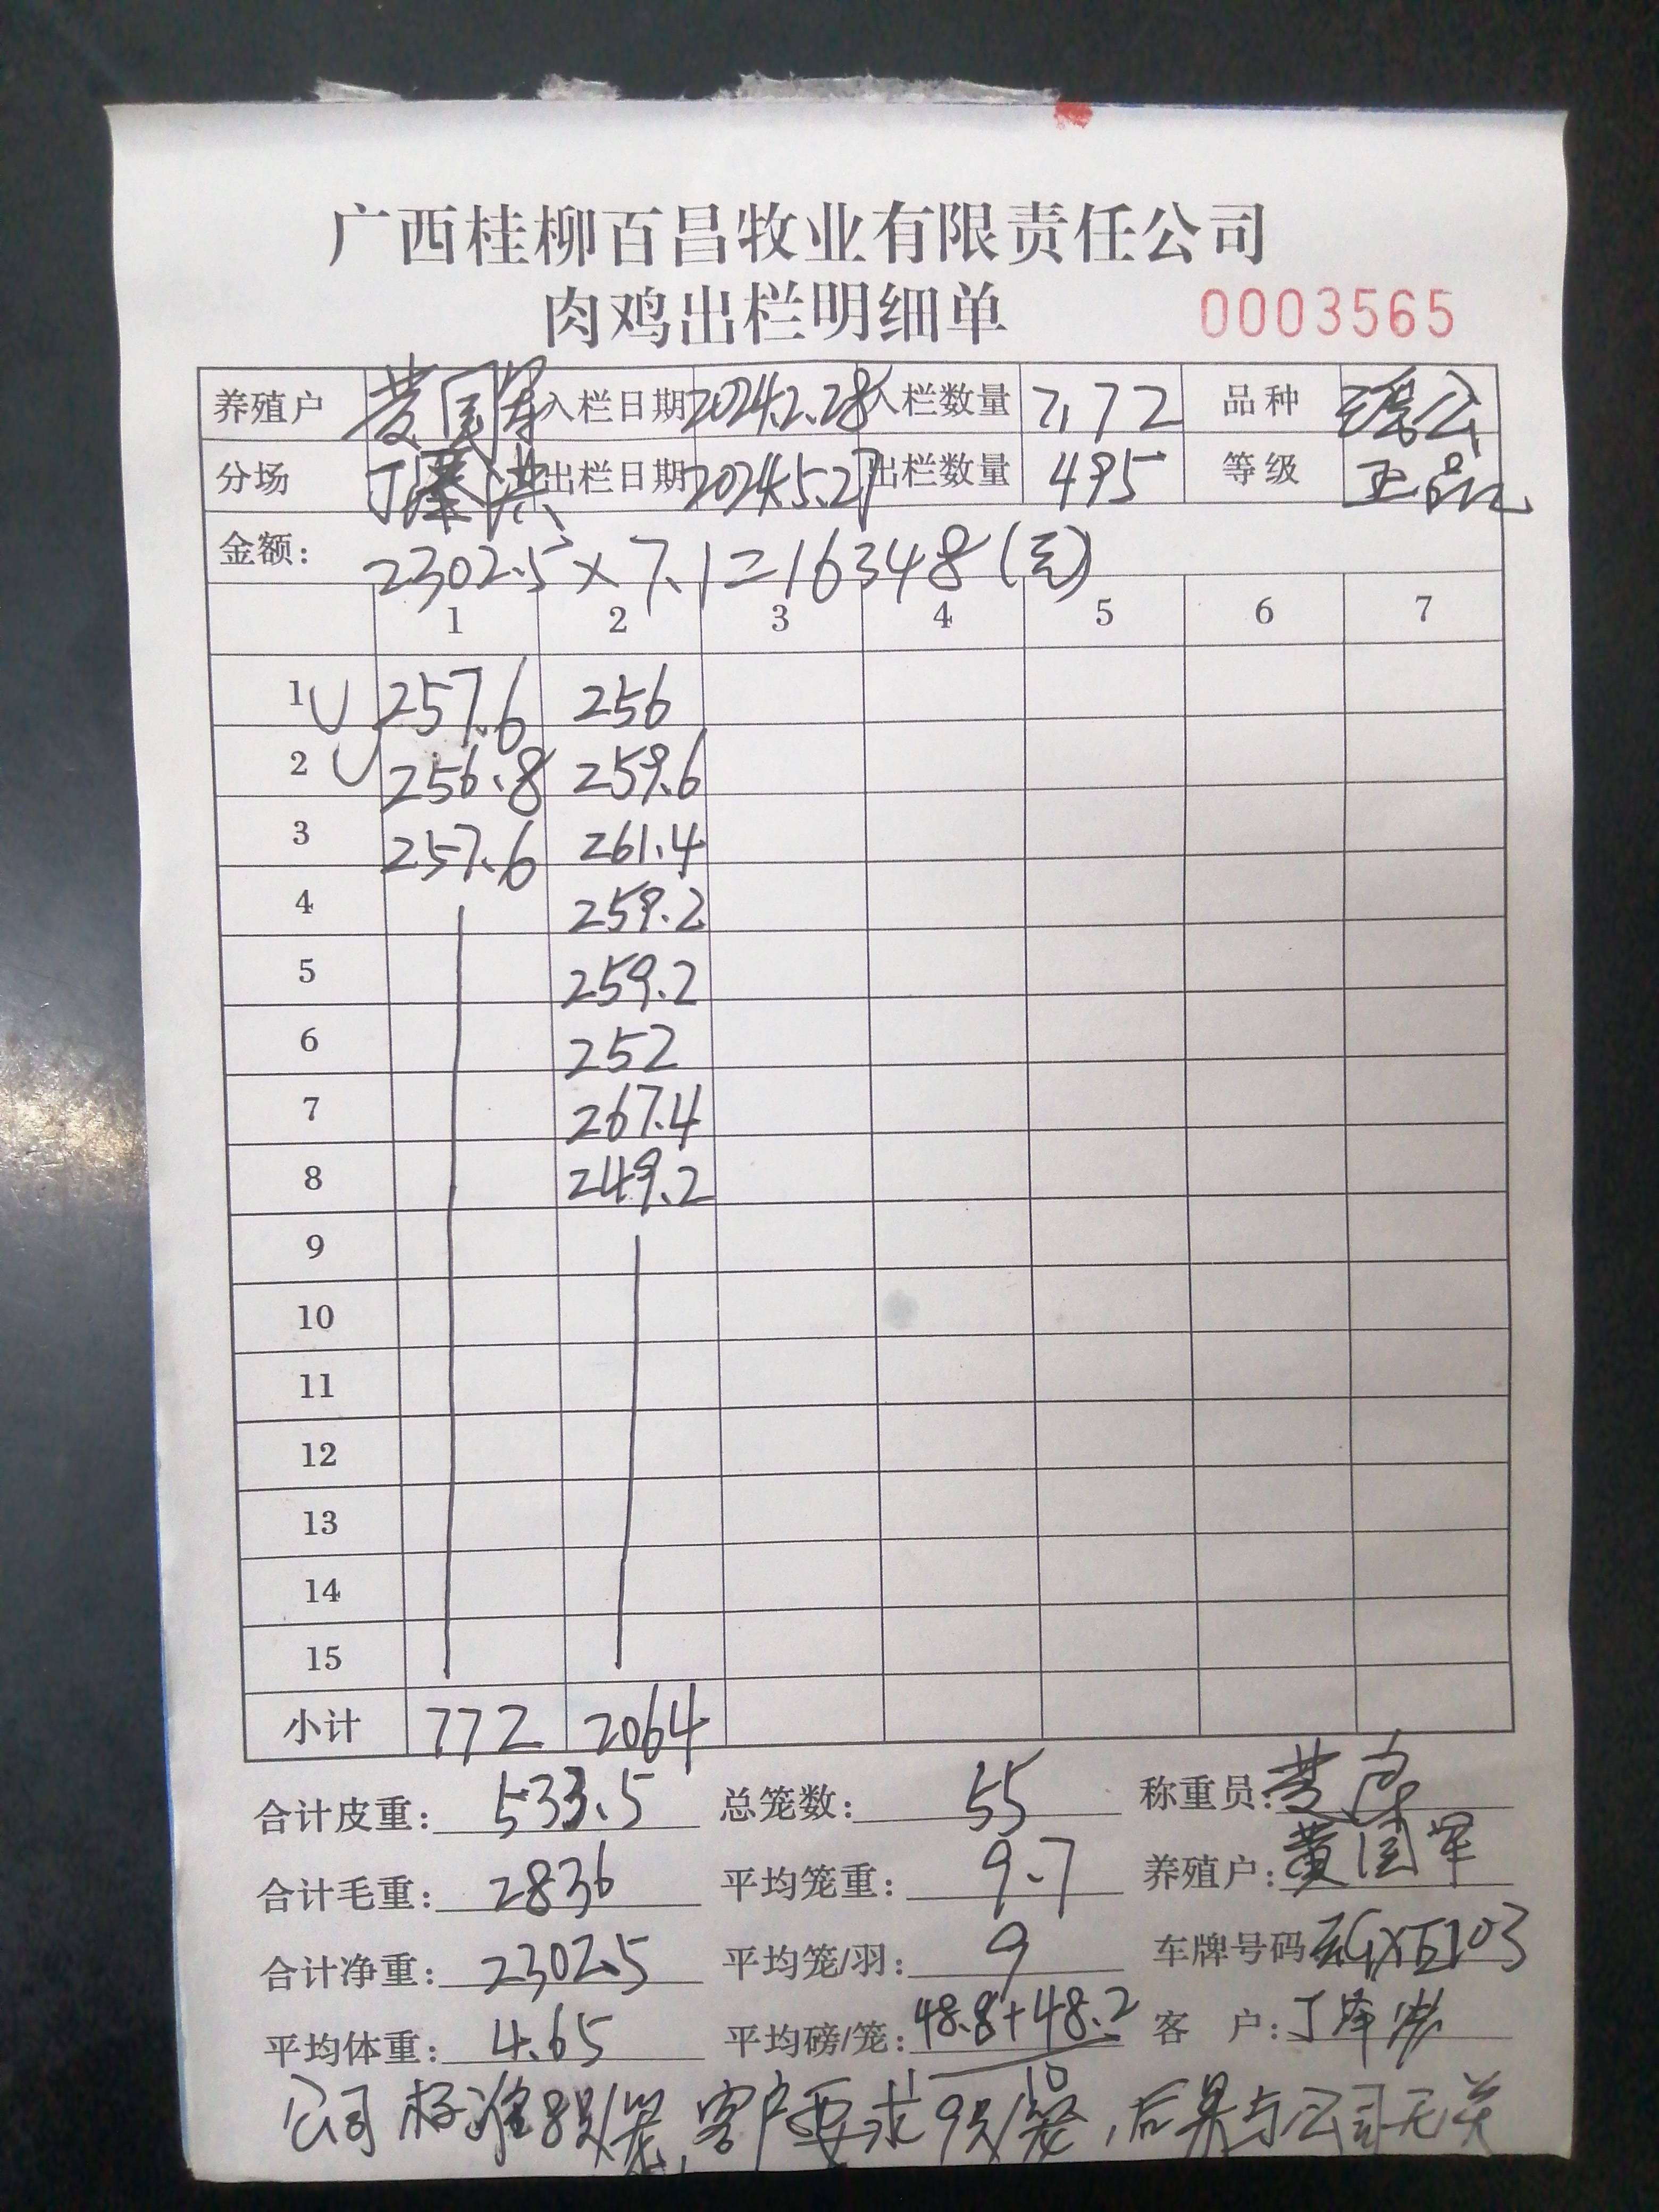 广西桂柳百昌牧业有限责任公司
肉鸡出栏明细单 0003565
养殖户 黄国军 入栏日期 2024.2.28 入栏数量 7172 品种 瑶公
分场 丁泽洪 出栏日期 2024.5.27 出栏数量 495 等级 正品
金额: 2302.5×7.1=16348(元)
1 2 3 4 5 6 7
1 257.6 256
2 256.8 259.6
3 257.6 261.4
4 259.2
5 259.2
6 252
7 267.4
8 249.2
9
10
11
12
13
14
15
小计 772 2064
合计皮重: 533.5 总笼数: 55 称重员: 黄
合计毛重: 2836 平均笼重: 9.7 养殖户: 黄国军
合计净重: 2302.5 平均笼/羽: 9 车牌号码
平均体重: 4.65 平均磅/笼: 48.8+48.2 客 户: 丁泽洪
10
公司标准8只/笼,客户要求9只/笼,后果与公司无关